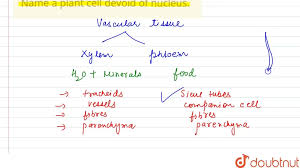 Name a plant cell devoid of nucleus.
Vascular tissue
Xylem phloem
H2O + Minerals food
→ tracheids ✓ Sieve tubes
→ vessels companion cell
→ fibres fibres
→ parenchyma parenchyma
doubtnut